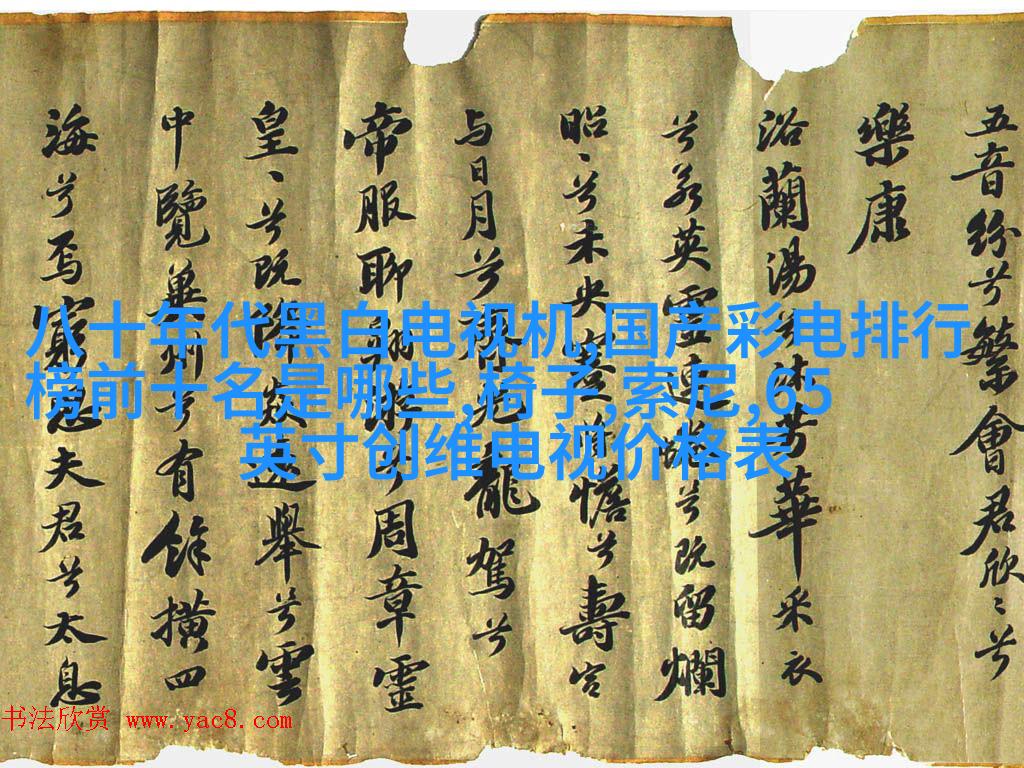 五音紛兮繁會君欣〻兮
樂康
浴蘭湯兮沐芳華采衣
兮若英靈連蜷兮既留爛
昭〻兮未央蹇將憺兮壽宮
与日月兮齊光龍駕兮
帝服聊翱遊兮周章靈
皇〻兮既降猋遠舉兮雲
中覽冀州兮有餘橫四
海兮焉窮思夫君兮太息
八十年代黑白电视机,国产彩电排行
榜前十名是哪些,椅子,索尼,65
英寸创维电视价格表
书法欣赏 www.yac8.com